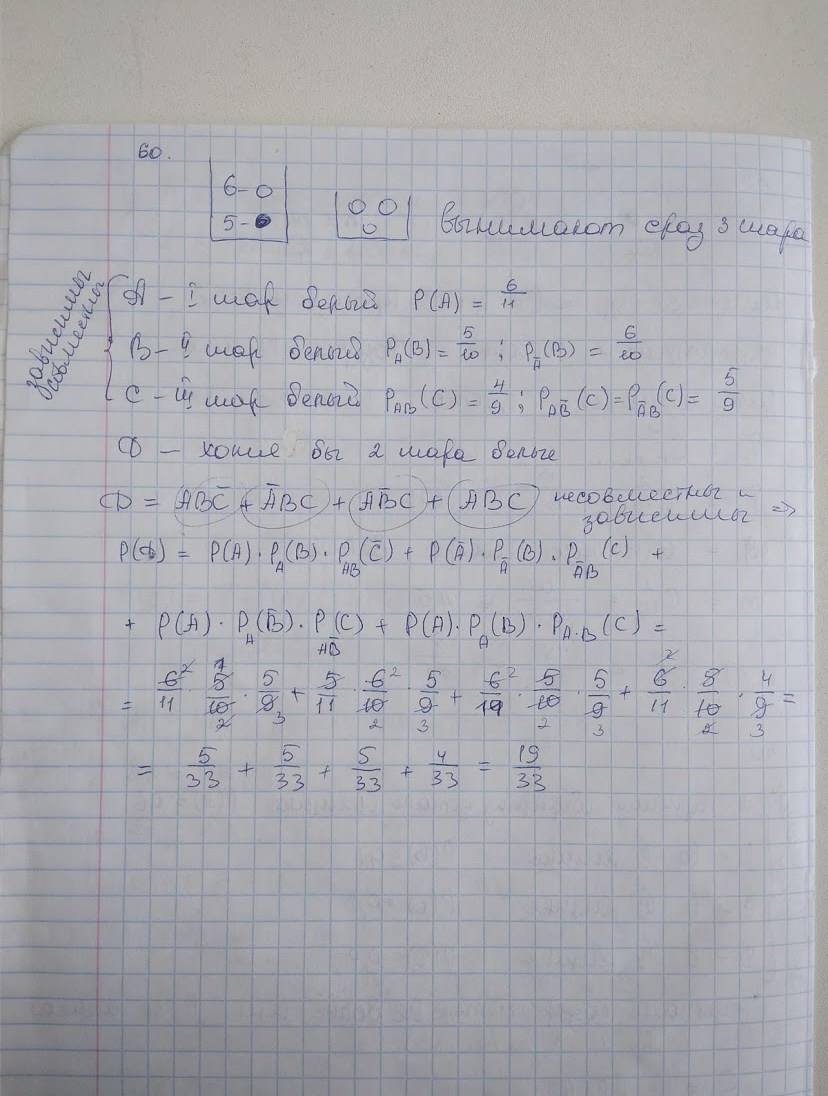 60.
6 - O
5 - ●
O O
O
вынимают сраз 3 шара
зависимы
совместны
A - I шар белый P(A) = 6/11
B - II шар белый P_A(B) = 5/10 ; P_Ā(B) = 6/10
C - III шар белый P_AB(C) = 4/9 ; P_AB̄(C) = P_ĀB(C) = 5/9
D - хотя бы 2 шара белые
D = ABC̄ + ĀBC + AB̄C + ABC несовместны и
зависимы =>
P(D) = P(A) · P_A(B) · P_AB(C̄) + P(Ā) · P_Ā(B) · P_ĀB(C) +
+ P(A) · P_A(B̄) · P_AB̄(C) + P(A) · P_A(B) · P_A·B(C) =
= 6/11 · 5/10 · 5/9 + 5/11 · 6/10 · 5/9 + 6/11 · 5/10 · 5/9 + 6/11 · 5/10 · 4/9 =
= 5/33 + 5/33 + 5/33 + 4/33 = 19/33